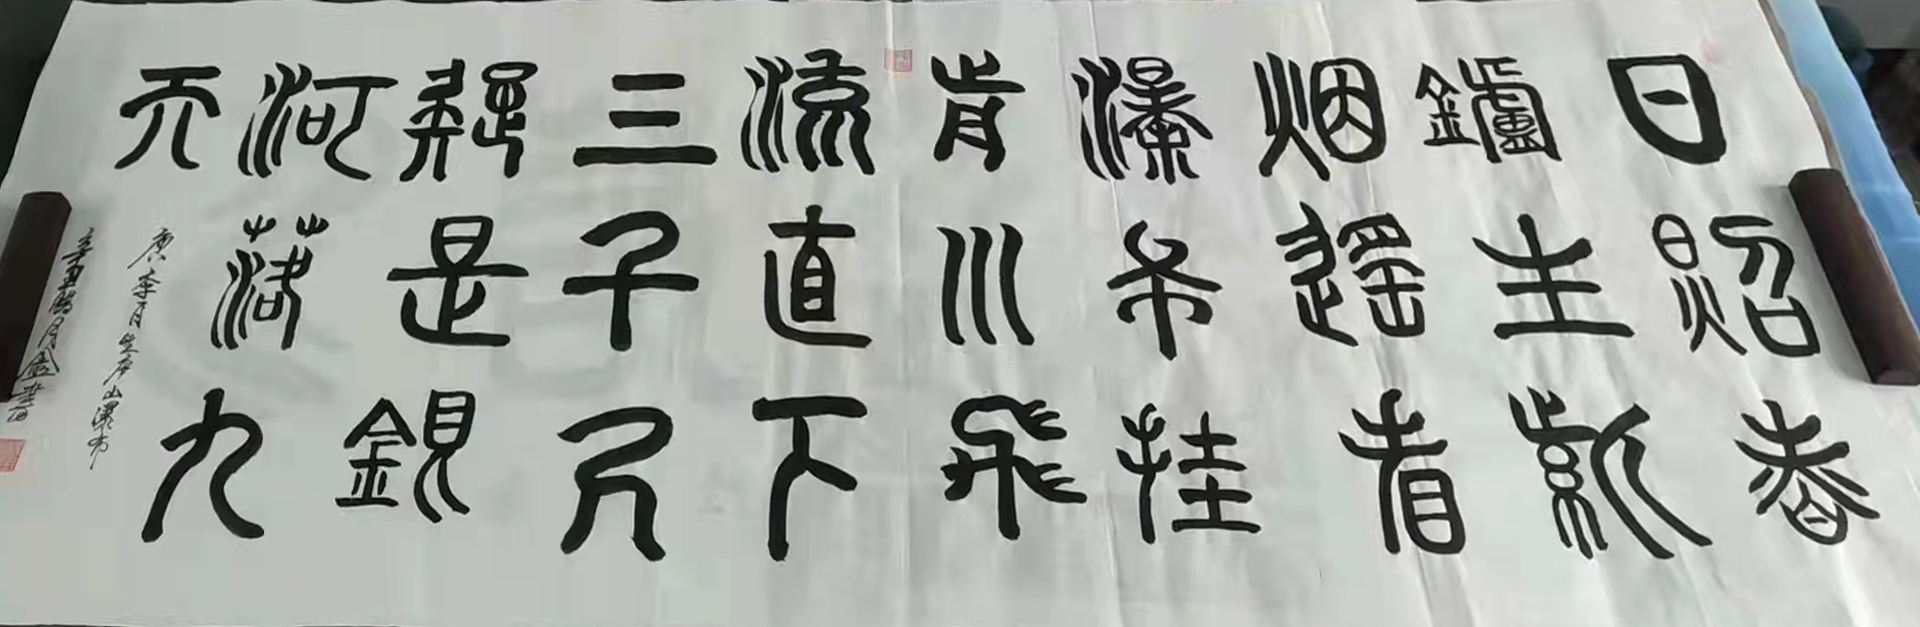 日照香
鑪生紫
烟遥看
瀑布挂
前川飛
流直下
三千尺
疑是銀
河落九
天
唐李白望庐山瀑布
辛丑腊月